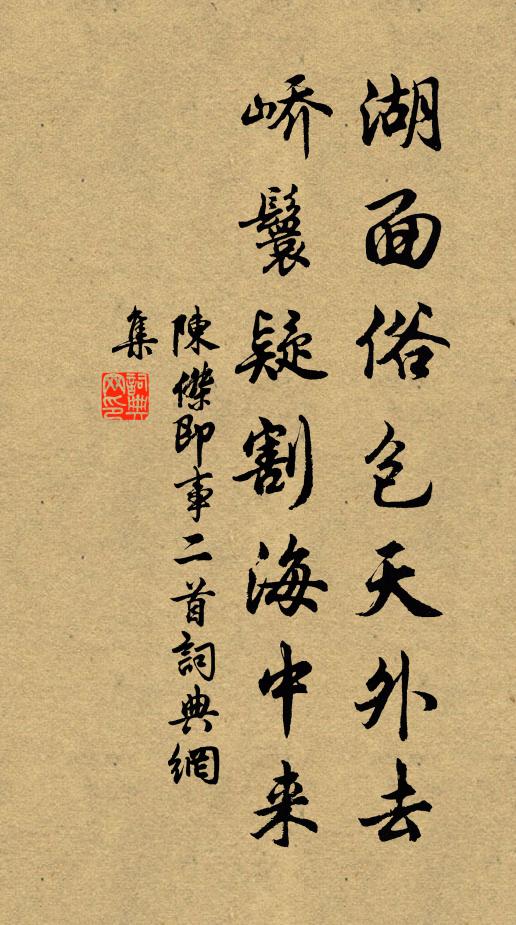 湖面俗包天外去
峤鬟疑割海中来
陳傑即事二首詞典網
集
詞典网印